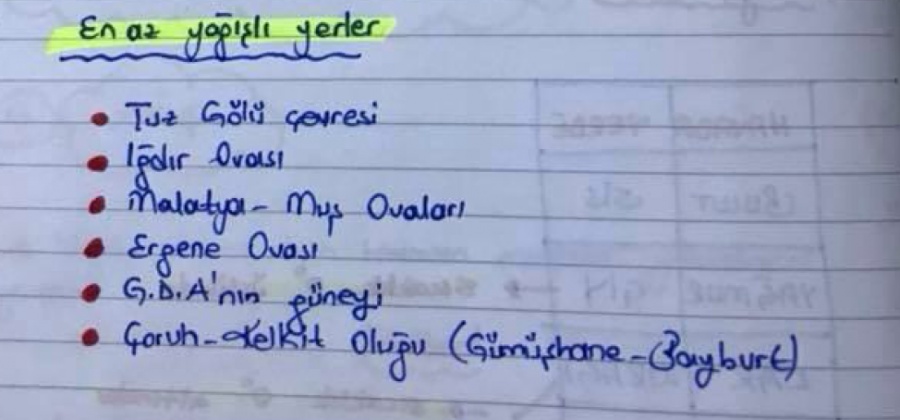 En az yağışlı yerler
• Tuz Gölü çevresi
• Iğdır Ovası
• Malatya - Muş Ovaları
• Ergene Ovası
• G.D.A'nın güneyi
• Çoruh - Kelkit Oluğu (Gümüşhane - Bayburt)